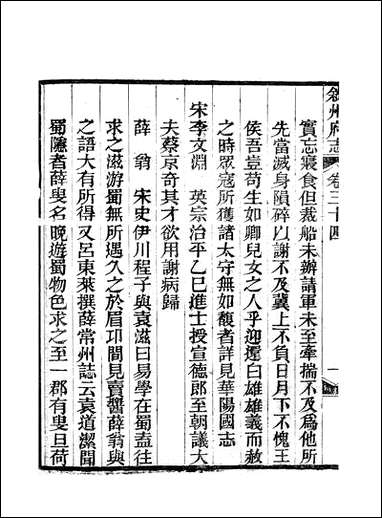 敘州府志 卷三十四 一
實忘寢食但裁船未辦請軍未至牽揣不及爲他所
先當滅身隕碎以謝不及冀上不負日月下不愧王
侯吾豈苟生如卿兒女之人乎迎遂白雄雄義而赦
之時眾寇所獲諸太守無如馥者詳見華陽國志
宋李文淵 英宗治平乙巳進士授宣德郎至朝議大
夫蔡京奇其才欲用謝病歸
薛 翁 宋史伊川程子與袁滋曰易學在蜀盍往
求之滋游蜀無所遇久之於眉卭間見賣醬薛翁與
之語大有所得 又呂東萊撰薛常州誌云袁道潔聞
蜀隱者薛叟名晚遊蜀物色求之至一郡有叟旦荷